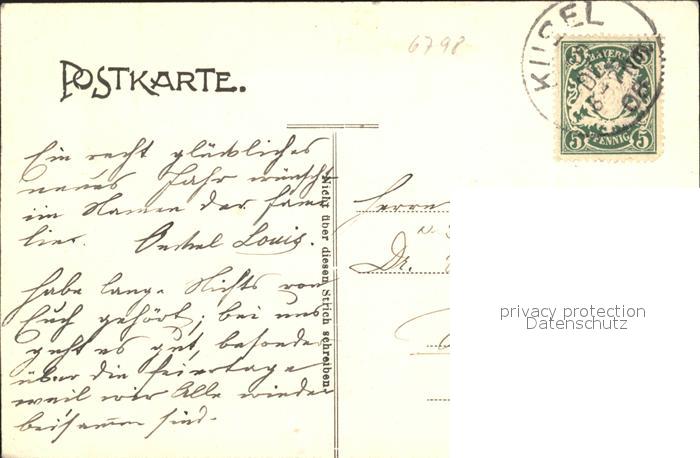 6798
KUSEL
POSTKARTE.
5 BAYERN 5
5 PFENNIG 5
Ein recht glückliches
neues Jahr wünscht
im Namen der Fami-
lie. Onkel Louis.
habe lange Nichts von
Euch gehört; bei uns
geht es gut, besonders
über die Feiertage
weil wir Alle wieder
beisammen sind.
Nicht über diesen Strich schreiben.
Herrn
Dr.
privacy protection
Datenschutz